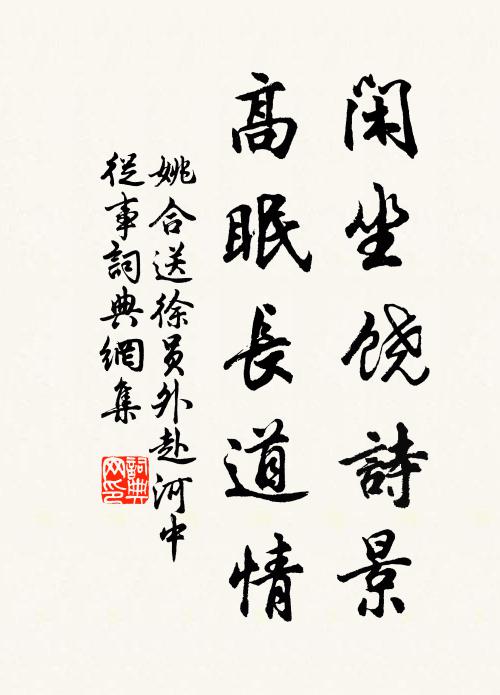 闲坐饶詩景
高眠長道情
姚合送徐員外赴河中
從事詞典網集
詞典
网印